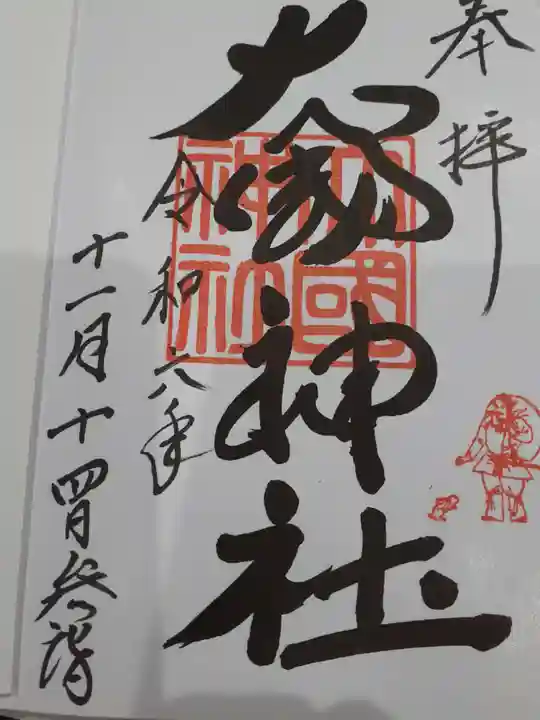 奉拝
大國神社
大國神社
令和六年
十一月十四日参詣